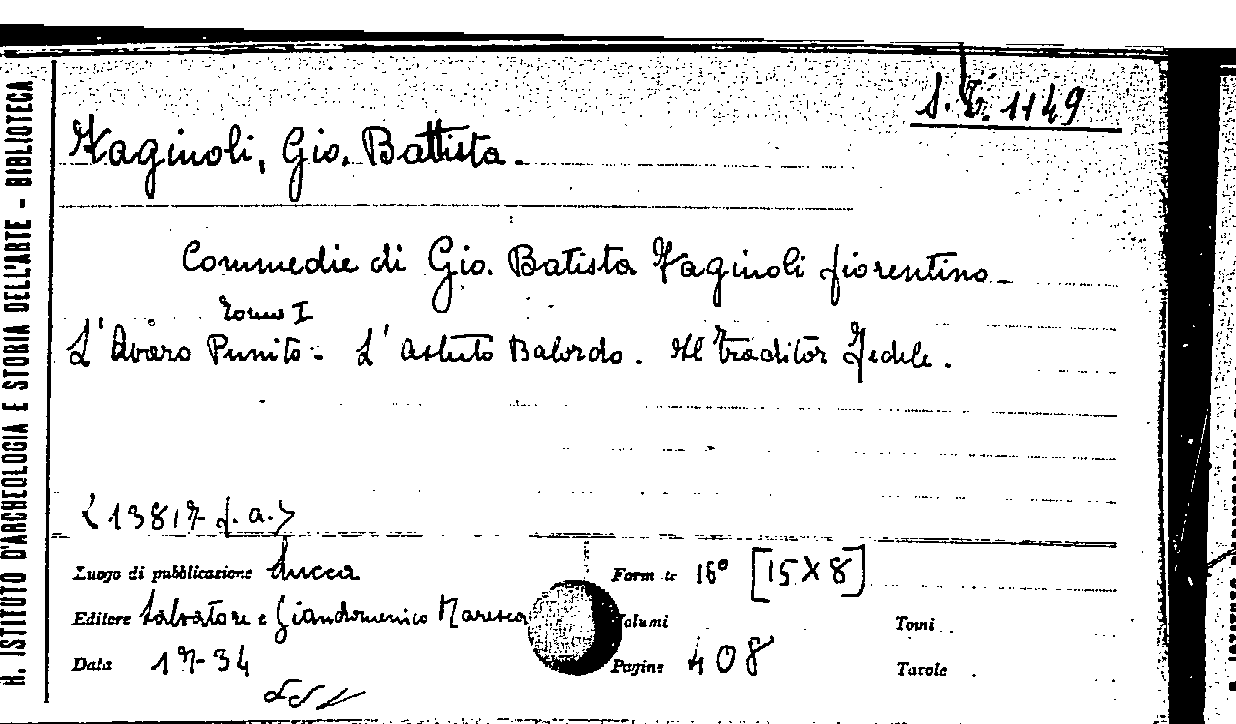 R. ISTITUTO D'ARCHEOLOGIA E STORIA DELL'ARTE - BIBLIOTECA
S. T. 1149
Faginoli, Gio. Battista.
Commedie di Gio. Batista Faginoli fiorentino_
Tomo I
L'Avaro Punito - L'Astuto Balordo. Il Traditor Fedele.
<13817 f. a.>
Luogo di pubblicazione Lucca
Formato 16° [15X8]
Editore Salvatore e Giandomenico Maresca
Volumi
Tomi
Data 1734
Pagine 408
Tavole